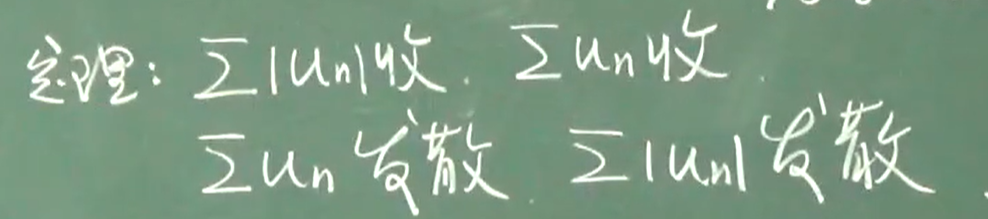 定理: Σ|Un|收. Σun收.
Σun发散. Σ|un|发散.